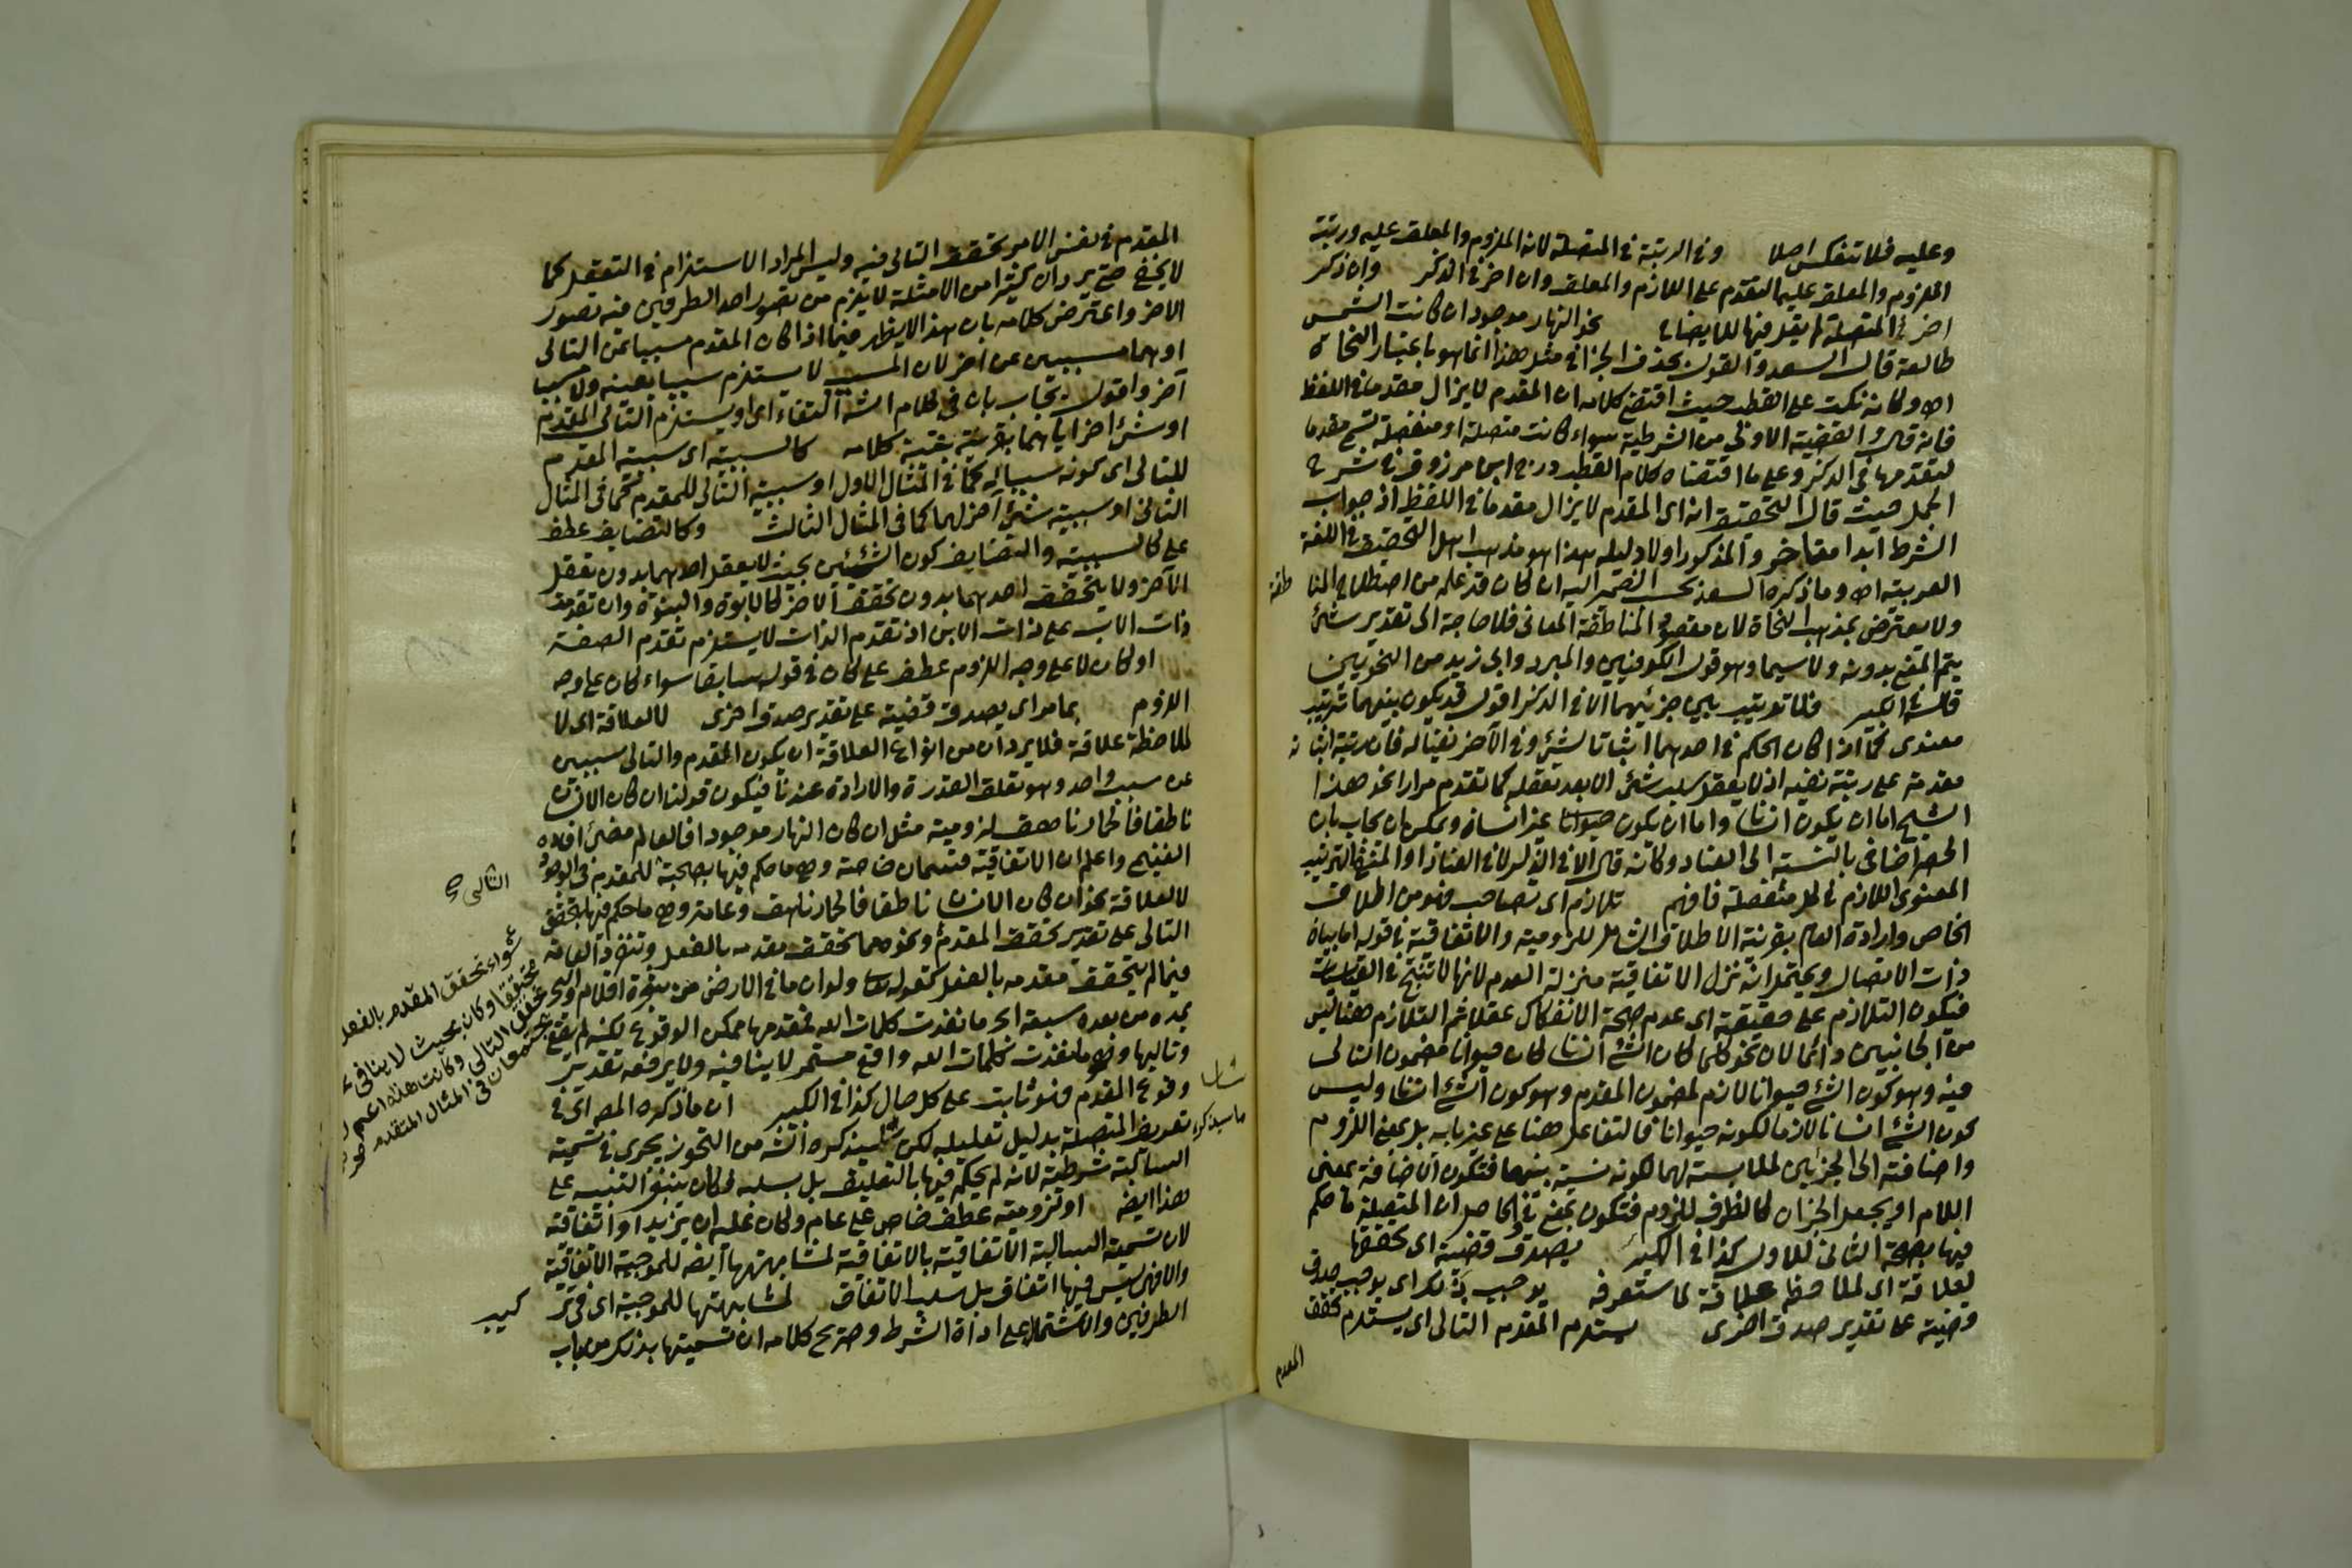 وعليه فلا تنفكس اصلا وفي الرتبة في المتصلة لانه الملزوم والمعلق عليه ورتبة
الملزوم والمعلق عليهما التقدم على اللازم والمعلق وان اخر في الذكر وان ذكر
اخرا المتصلة لم يقل فيها للايضاح نحو النهار موجود ان كانت الشمس
طالعة قال السعد والقول بحذف الجزا في مثل هذا انما هو باعتبار النحاة
اه وكانه نكت على القطب حيث اقتضى كلامه ان المقدم لا يزال مقدما في اللفظ
فانه قال القضية الاولى من الشرطية سواء كانت متصلة او منفصلة تسمى مقدما
لتقدمها في الذكر وعلى ما اقتضاه كلام القطب درج ابن مرزوق في شرح
الجمل حيث قال التحقيق انه اي المقدم لا يزال مقدما في اللفظ اذ جواب
الشرط ابدا مقا خر والمذكور اولا دليله هذا هو مذهب اهل التحقيق في اللغة
العربية اه وما ذكره السعد بحسب النضر اليه ان كان قد علم من اصطلاح المنا
طقة
ولا يعترض بمذهب النحاة لان مقصود المناطقة المعاني فلا حاجة الى تقدير شئ
يتم المعنى بدونه ولا سيما وهو قول الكوفيين والمبرد وابي زيد من النحويين
قاله في الكبير فلا ترتيب بين جزئيهما الا في الذكر اقول قد يكون بينهما ترتيب
معنوى كما اذا كان الحكم في احدهما اثباتا لشئ وفي الآخر نفيا له فان رتبة اثبا ته
مقدمة على رتبة نفيه اذ لا يعقل سلب شئ الا بعد تعقله كما تقدم مرارا نحو هذا
الشبح اما ان يكون انسانا واما ان يكون حيوانا غير انسان ويمكن ان يجاب بان
الحصر اضافي بالنسبة الى العناد وكانه قال الا في الذكر لا في العناد او المنفي الترتيب
المعنوى اللازم في كل منفصلة فافهم تلازم اى تصاحب فهو من اطلاق
الخاص وارادة العام بقرينة الاطلاق الشامل للزومية والاتفاقية في قوله اما بيان
ذات الاتصال ويحتمل انه نزل الاتفاقية منزلة العدم لانها لا تنتج في القياسات
فيكون التلازم على حقيقته اى عدم صحة الانفكاك عقلا ثم التلازم هنا ليس
من الجانبين دائما لان نحو كلما كان الشئ انسانا كان حيوانا مضمون التالي
فيه وهو كون الشئ حيوانا لازم لمضمون المقدم وهو كون الشئ انسانا وليس
كون الشئ انسانا لازما لكونه حيوانا فالتفاعل هنا على غير بابه بل بمعنى اللزوم
واضافته الى الجزئين لملابسته لهما لكونه نسبة بينهما فتكون الاضافة بمعنى
اللام او يجعل الجزان كالظرف للزوم فتكون بمعنى في والحاصل ان المتصلة ما حكم
فيها بصحبة الثاني للاول كذا في الكبير بصدق قضية اى تحققها
لعلاقة اى لملاحظة علاقة لما ستعرفه يوجب ذلك اى يوجب صدق
قضية على تقدير صدق اخرى يستلزم المقدم التالي اى يستلزم تحقق
المقدم
المقدم في نفس الامر تحقق التالي فيه وليس المراد الاستلزام في التعقل كما
لا يخفى حتى يرد ان كثيرا من الامثلة لا يلزم من تصور احد الطرفين فيه تصور
الاخر واعترض كلامه بان هذا لا يظهر فيما اذا كان المقدم مسببا عن التالي
او هما مسببين عن اخر لان المسبب لا يستلزم سببا بعينه ولا مسبب
آخر واقول يجاب بان في كلام الش اكتفاء اى او يستلزم التالي المقدم
او شئ اخر اياهما بقرينة بقية كلامه كالسببية اى سببية المقدم
للتالي اى كونه سببا له كما في المثال الاول او سببية التالي للمقدم كما في المثال
الثاني او سببية شئ آخر لهما كما في المثال الثالث وكالتضايف عطف
على كالسببية والتضايف كون الشيئين بحيث لا يعقل احدهما بدون تعقل
الآخر ولا يتحقق احدهما بدون تحقق الآخر كالابوة والبنوة وان تقدمت
ذات الاب على ذات الابن اذ تقدم الذات لا يستلزم تقدم الصفة
او كان لا على وجه اللزوم عطف على كان في قوله سابقا سواء كان على وجه
اللزوم بما مر اى يصدق قضية على تقدير صدق اخرى لا لعلاقة اى لا
لملاحظة علاقة فلا يرد ان من انواع العلاقة ان يكون المقدم والتالي مسببين
عن سبب واحد وهو تعلق القدرة والارادة عندنا فيكون قولنا ان كان الانسان
ناطقا فالحمار ناهق لزومية مثل ان كان النهار موجودا فالعالم مضئ افاده
الغنيمي واعلم ان الاتفاقية قسمان خاصة وهي ما حكم فيها بصحبة للمقدم في الوجود
التالي صح
لا لعلاقة نحو ان كان الانسان ناطقا فالحمار ناهق وعامة وهي ما حكم فيها بتحقق
التالي على تقدير تحقق المقدم ونحوهما تحقق مقدمه بالفعل وتنفرد العامة
فيما لم يتحقق مقدمه بالفعل كقوله تعالى ولو ان ما في الارض من شجرة اقلام والبحر
يمده من بعده سبعة ابحر ما نفدت كلمات الله فمقدمها ممكن الوقوع لكنه لم يقع
وتاليها وهو ما نفدت كلمات الله واقع مستمر لا ينافيه ولا يرفعه تقدير
وقوع المقدم فهو ثابت على كل حال كذا في الكبير ان ما ذكره المص اى في
تعريف المتصلة بدليل تعليله لكن سيذكره الش من التجوز يجرى في تسمية
السالبة شرطية لانه لم يحكم فيها بالتعليق بل بسلبه فكان ينبغي التنبيه على
هذا ايضا او لزومية عطف خاص على عام وكان عليه ان يزيد او اتفاقية
لان تسمية السالبة الاتفاقية بالاتفاقية لمشابهتها ايضا للموجبة الاتفاقية
والا فهي ليس فيها اتفاق بل سلب الاتفاق لمشابهتها للموجبة اى في
الطرفين والاشتمال على اداة الشرط وصريح كلامه ان تسميتها بذلك من باب
سواء تحقق المقدم بالفعل
تحقق التالي وكانت هذه اعم
يجتمعان في المثال المتقدم
ما سيذكره
كبير